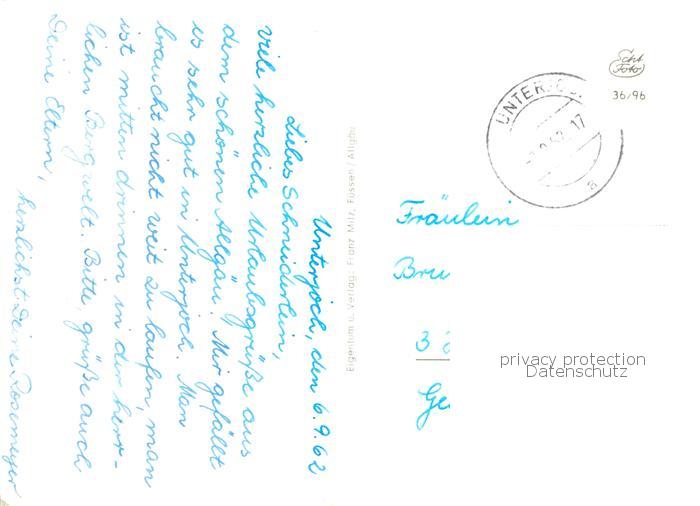 Unterjoch, den 6.9.62
Liebes Schneiderlein,
Viele herzliche Urlaubsgrüße aus
dem schönen Allgäu. Mir gefällt
es sehr gut in Unterjoch. Man
braucht nicht weit zu laufen, man
ist mitten drinnen in der herr-
lichen Bergwelt. Bitte, grüße auch
Deine Eltern,
herzlichst Deine Rosemeyer
Eigentum u. Verlag: Franz Milz, Füssen / Allgäu
Echt
Foto
36/96
UNTERJO
17
a
Fräulein
Bru
3
Ge
privacy protection
Datenschutz